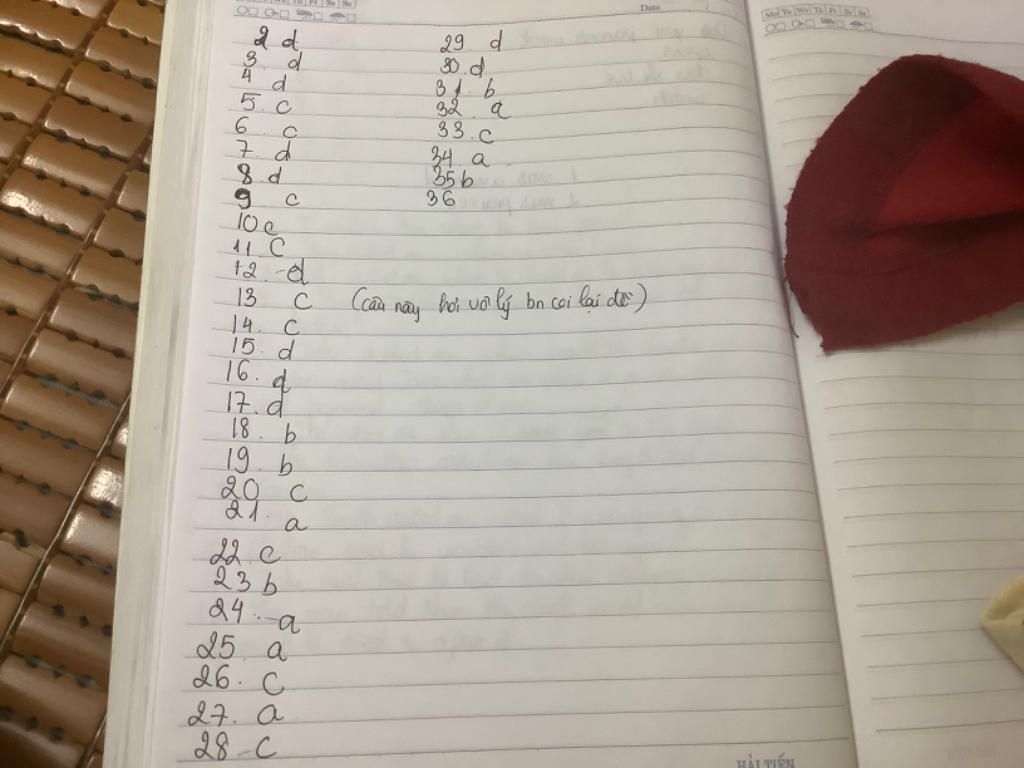 Date
Mo Tu We Th Fr Sa Su
2 d
3. d
4 d
5. c
6. c
7. d
8. d
9 c
10 c
11. C
12. d
13 c (câu này hơi vô lý bn coi lại đề)
14. c
15. d
16. d
17. d
18. b
19. b
20 c
21. a
22. c
23 b
24. a
25 a
26. c
27. a
28 c
29. d
30. d
31. b
32. a
33. c
34 a
35 b
36
HẢI TIẾN